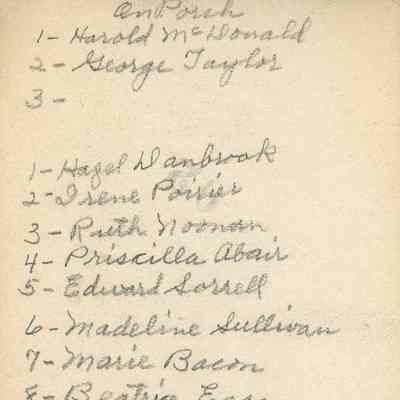 On Porch
1- Harold McDonald
2- George Taylor
3-
1- Hazel Danbrook
2- Irene Poirier
3- Ruth Noonan
4- Priscilla Abair
5- Edward Sorrell
6- Madeline Sullivan
7- Marie Bacon
8- Beatrice